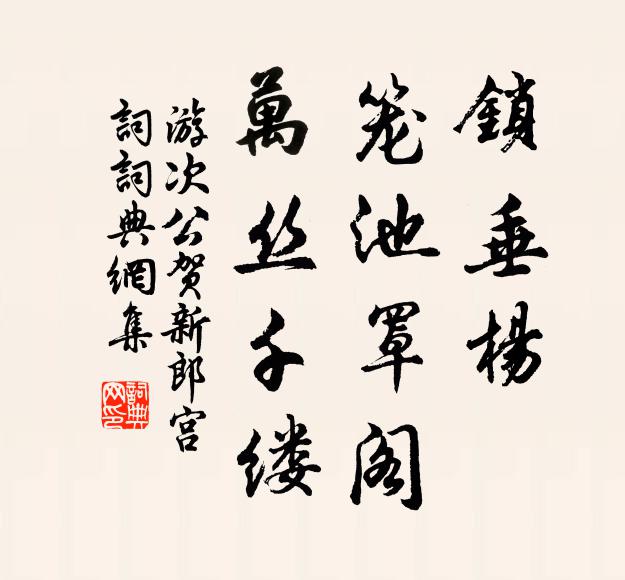 鎖垂楊
笼池罩阁
萬丝千缕
游次公贺新郎宫
詞詞典網集
詞典网印